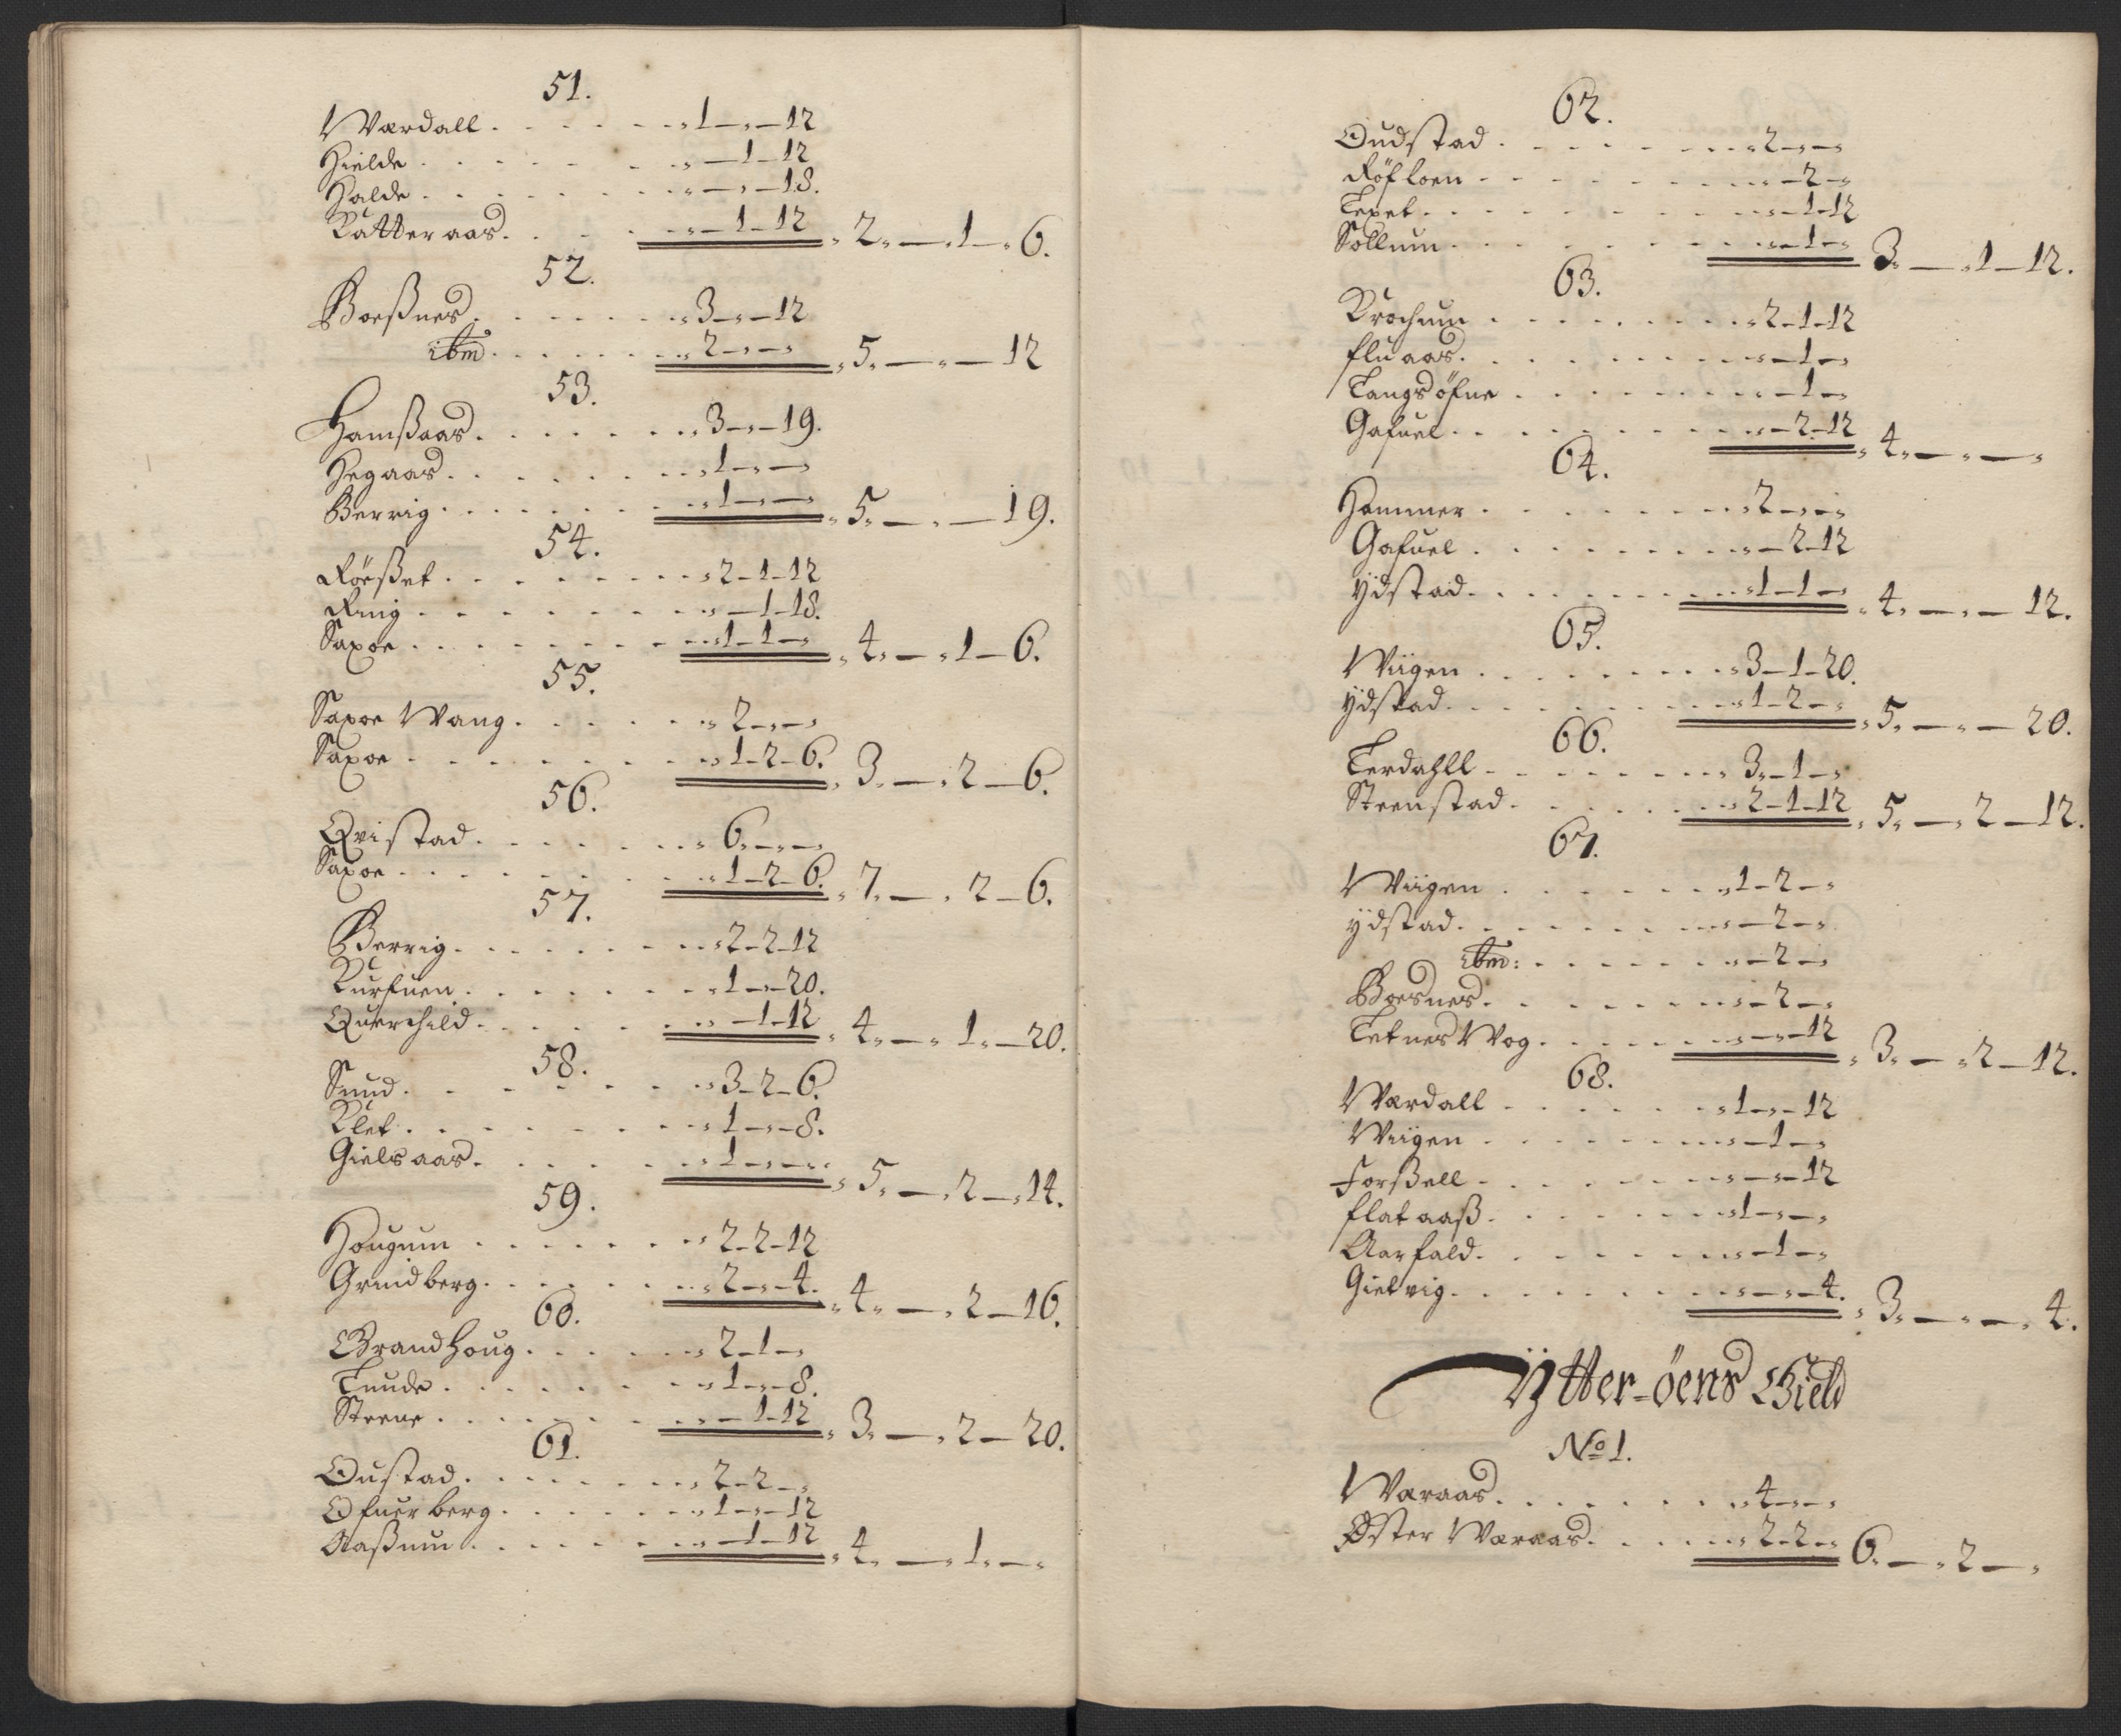 51.
Wærdall . . . . . . „1—„—12
Hielde . . . . . . „—1—12
Halde . . . . . . „—„—18.
Katteraas . . . . „—1—12 „2„—„1—„6.
52.
Boeßnes . . . . . „3—„—12
ibm . . . . . „2—„—„ „5„—„—12
53.
Hamßaas . . . . . „3—„—19.
Hegaas . . . . . . „1—„—„
Berrig . . . . . . „1—„—„ „5„—„—19.
54.
Röeßet . . . . . . „2-1-12
Ring . . . . . . „—1-18.
Saxoe . . . . . . „1-1-„ „4„—„1—6.
55.
Saxoe Wang . . . . „2—„—„
Saxoe . . . . . . „1-2-6. „3—„2—6.
56.
Qvistad . . . . . . „6„—„—„
Saxoe . . . . . . „1-2-6. „7„—„2—6.
57.
Berrig . . . . . . „2-2-12
Kurfuen . . . . . . „1—„-20.
Querchild . . . . . „—1-12 „4„—„1„—20.
58.
Sund . . . . . . „3-2-6.
Klet . . . . . . „1—„-8.
Gielsaas . . . . . „1—„—„ „5„—„2—„14.
59.
Hougum . . . . . . „2-2-12
Grindberg . . . . . „2—„-4. „4„—„2—16.
60.
Brandhoug . . . . . „2-1-„
Tuude . . . . . . „1—„-8.
Steene . . . . . . „—1-12 „3„—„2—20.
61.
Oustad . . . . . . „2-2-„
Ofuerberg . . . . . „1—„-12
Aaßnum . . . . . . „—1-12 „4„—„1„—„
62.
Oudstad . . . . . . „2—„—„
Röfloen . . . . . . „—2-„
Texet . . . . . . „—1-12
Sollum . . . . . . „—1-„ 3„—„1—12.
63.
Krochum . . . . . . „2-1-12
fluaas . . . . . . „—1-„
Tangsöfne . . . . . „—1-„
Gafuel . . . . . . „—2-12 „4„—„—„
64.
Hammer . . . . . . „2—„—„
Gafuel . . . . . . „—2-12
ydstad . . . . . . „1-1-„ „4„—„—12.
65.
Wiigen . . . . . . „3-1-20.
ydstad . . . . . . „1-2-„ „5„—„—20.
66.
Terdahll . . . . . . „3„-1-„
Steenstad . . . . . „2-1-12 „5„—„2—12.
67.
Wiigen . . . . . . „1-2-„
ydstad . . . . . . „—2-„
ibm: . . . . . . „—2-„
Boesnes . . . . . . „—2-„
Tetnes Wog . . . . . „—„-12 „3„—„2—12.
68.
Wærdall . . . . . . „1—„-12
Wiigen . . . . . . „—1-„
Forßell . . . . . . „—„-12
flataaß . . . . . . „1—„—„
Aarfald . . . . . . „—1-„
Gietvig . . . . . . „—„-4. „3„—„—„4.
Ÿtter-öens Gield
No 1.
Wæraas . . . . . . „4—„—„
Øster Wæraas . . . . „2-2-„ 6„—„2—„